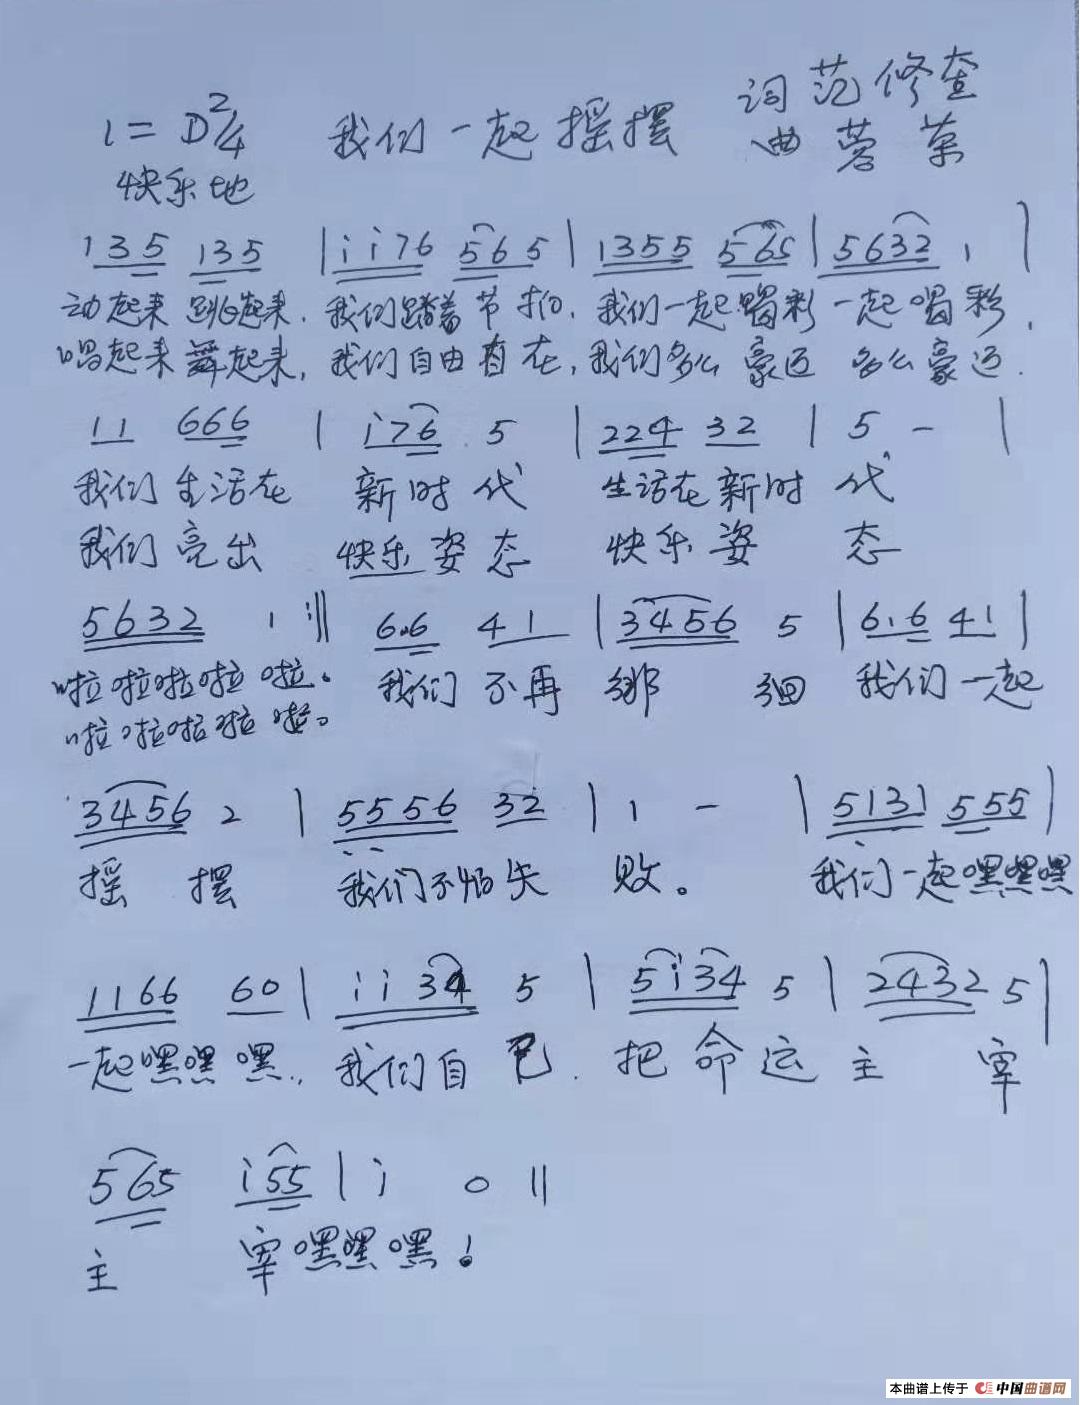 1=D 2/4 我们一起摇摆 词 范修奎
快乐地 曲 蓉蓉
135 135 | i i 7 6 5 6 5 | 1355 565 | 5632 1 |
动起来 跳起来. 我们踏着节拍. 我们一起喝彩 一起喝彩.
唱起来 舞起来, 我们自由自在, 我们多么豪迈 多么豪迈.
11 666 | i76 5 | 224 32 | 5 - |
我们 生活在 新时代 生活在新时代
我们 亮出 快乐姿态 快乐姿态
5632 1 :‖ 6.6 41 | 3456 5 | 6.6 41 |
啦啦啦啦 啦。 我们 不再 徘 徊 我们一起
啦啦啦啦 啦。
3456 2 | 5556 32 | 1 - | 5131 555 |
摇 摆 我们不怕失 败。 我们一起嘿嘿嘿
1166 60 | i i 34 5 | 5i34 5 | 2432 5 |
一起嘿嘿 嘿. 我们自己. 把命运 主 宰
565 i55 | i 0 ‖
主 宰嘿嘿嘿!
本曲谱上传于 中国曲谱网